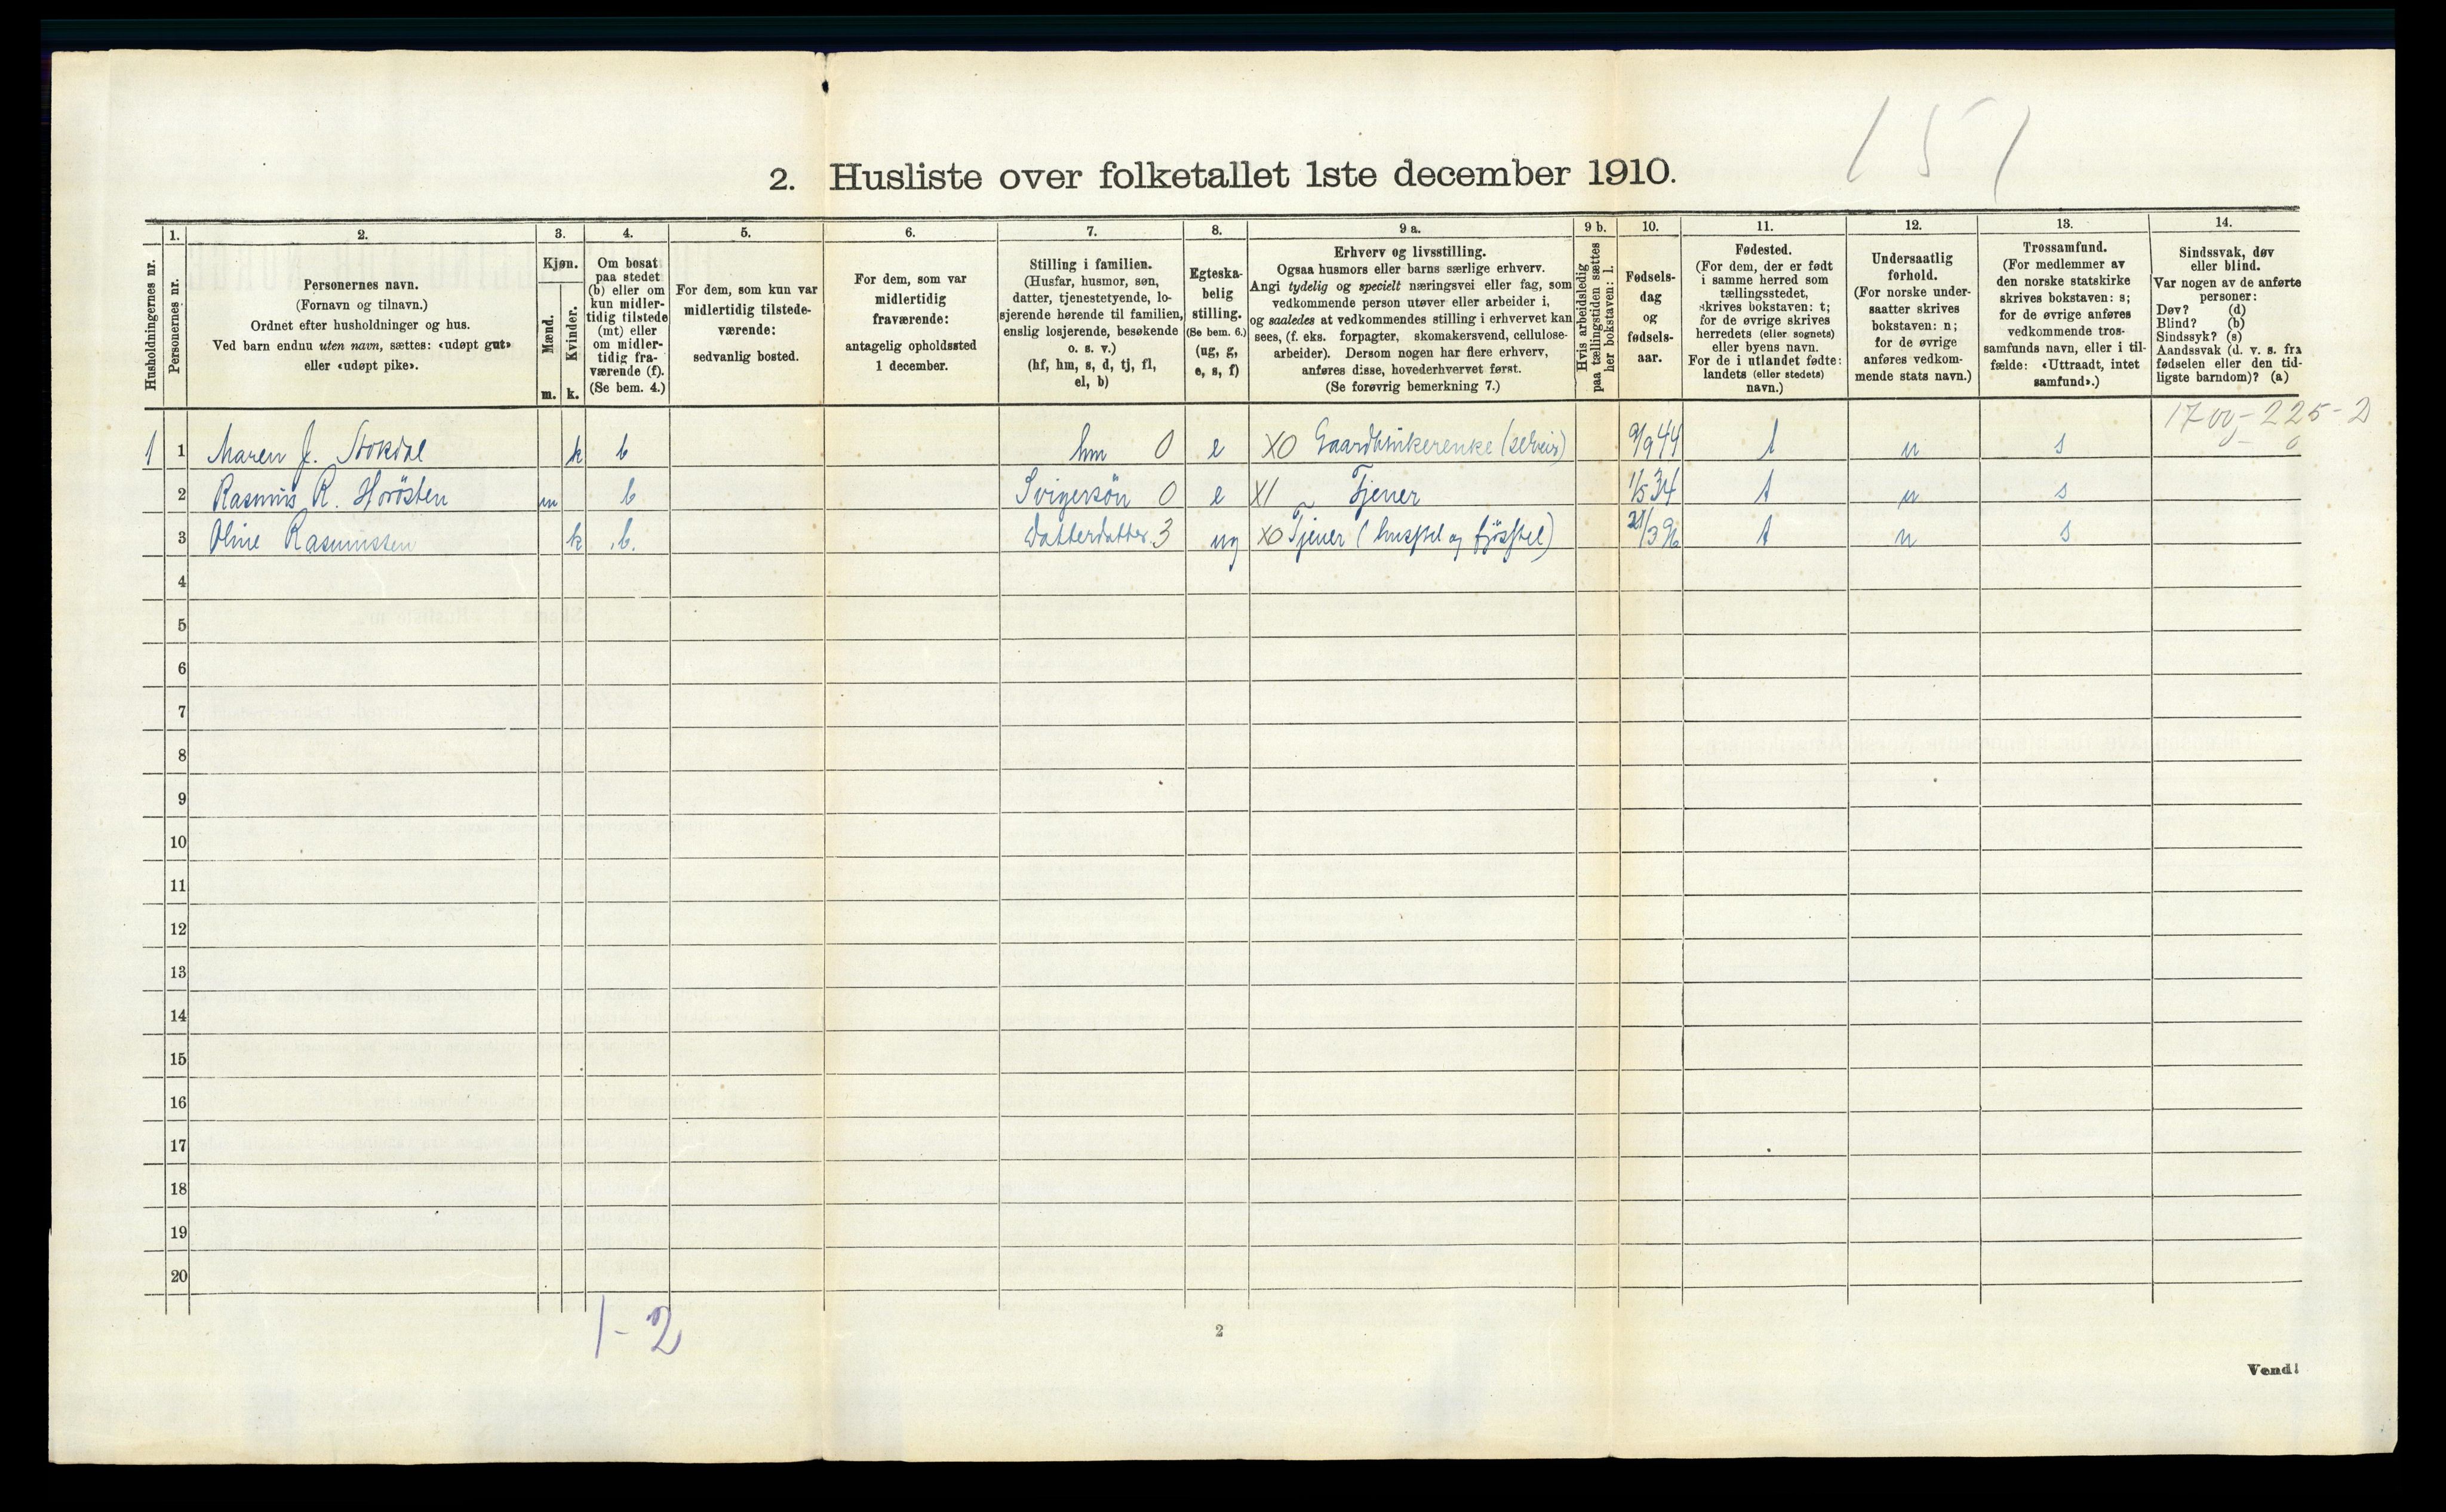 151
2. Husliste over folketallet 1ste december 1910.
Husholdningernes nr.
1.
Personernes nr.
2.
Personernes navn.
(Fornavn og tilnavn.)
Ordnet efter husholdninger og hus.
Ved barn endnu uten navn, sættes: «udøpt gut»
eller «udøpt pike».
3.
Kjøn.
Mænd.
Kvinder.
m. k.
4.
Om bosat
paa stedet
(b) eller om
kun midler-
tidig tilstede
(mt) eller
om midler-
tidig fra-
værende (f).
(Se bem. 4.)
5.
For dem, som kun var
midlertidig tilstede-
værende:
sedvanlig bosted.
6.
For dem, som var
midlertidig
fraværende:
antagelig opholdssted
1 december.
7.
Stilling i familien.
(Husfar, husmor, søn,
datter, tjenestetyende, lo-
sjerende hørende til familien,
enslig losjerende, besøkende
o. s. v.)
(hf, hm, s, d, tj, fl,
el, b)
8.
Egteska-
belig
stilling.
(Se bem. 6.)
(ug, g,
e, s, f)
9 a.
Erhverv og livsstilling.
Ogsaa husmors eller barns særlige erhverv.
Angi tydelig og specielt næringsvei eller fag, som
vedkommende person utøver eller arbeider i,
og saaledes at vedkommendes stilling i erhvervet kan
sees, (f. eks. forpagter, skomakersvend, cellulose-
arbeider). Dersom nogen har flere erhverv,
anføres disse, hovederhvervet først.
(Se forøvrig bemerkning 7.)
9 b.
Hvis arbeidsledig
paa tællingstiden sættes
her bokstaven: l.
10.
Fødsels-
dag
og
fødsels-
aar.
11.
Fødested.
(For dem, der er født
i samme herred som
tællingsstedet,
skrives bokstaven: t;
for de øvrige skrives
herredets (eller sognets)
eller byens navn.
For de i utlandet fødte:
landets (eller stedets)
navn.)
12.
Undersaatlig
forhold.
(For norske under-
saatter skrives
bokstaven: n;
for de øvrige
anføres vedkom-
mende stats navn.)
13.
Trossamfund.
(For medlemmer av
den norske statskirke
skrives bokstaven: s;
for de øvrige anføres
vedkommende tros-
samfunds navn, eller i til-
fælde: «Uttraadt, intet
samfund».)
14.
Sindssvak, døv
eller blind.
Var nogen av de anførte
personer:
Døv? (d)
Blind? (b)
Sindssyk? (s)
Aandssvak (d. v. s. fra
fødselen eller den tid-
ligste barndom)? (a)
1700-225-2
0
1 1 Maren J. Stokdal k b hm 0 e XO Gaardbrukerenke (selveier) 9/9 44 t n s
2 Rasmus R. Horösten m b Svigersön 0 e X1 Tjener 1/5 34 t n s
3 Oline Rasmussen k b. Datterdatter 3 ug XO Tjener (husstel og fjösstel) 21/3 96 t n s
4
5
6
7
8
9
10
11
12
13
14
15
16
17
18
19
20
1-2
2
Vend!